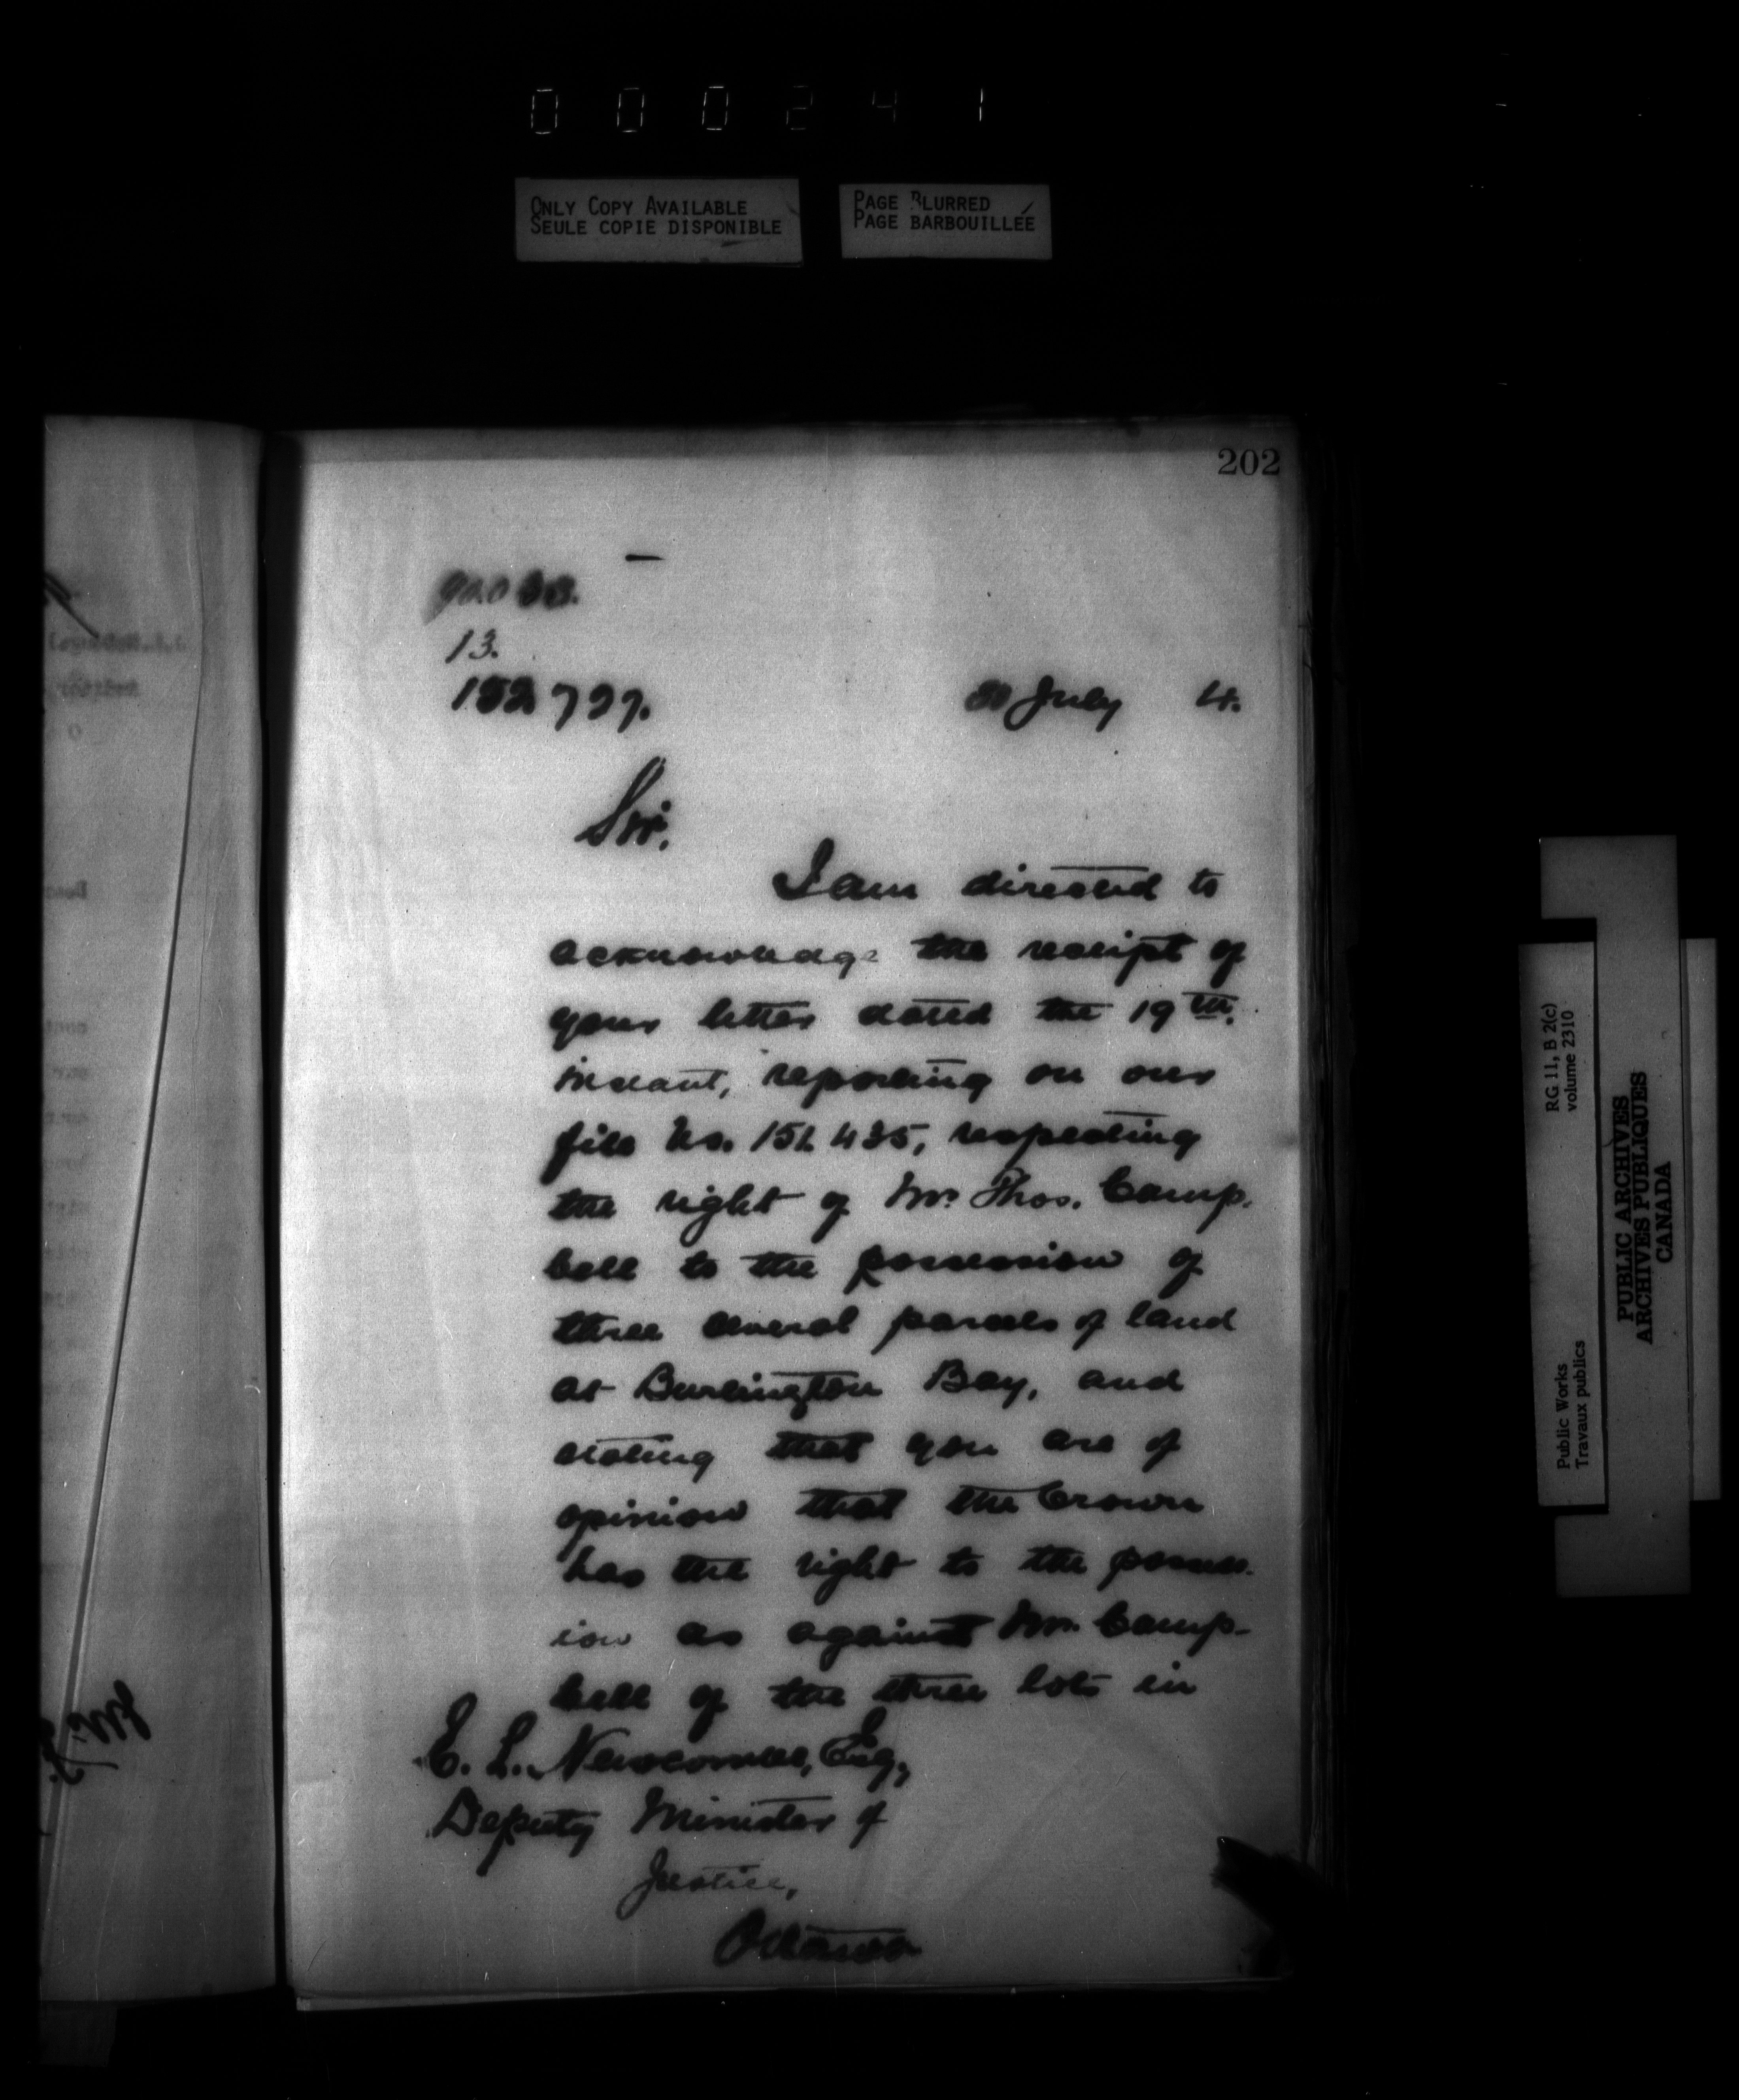 000241
ONLY COPY AVAILABLE
SEULE COPIE DISPONIBLE
PAGE BLURRED
PAGE BARBOUILLÉE
202
13.
152727.
July 4.
Sir,
I am directed to
acknowledge the receipt of
your letter dated the 19th.
instant, reporting on our
file No. 151435, respecting
the right of Mr. Thos. Camp-
bell to the possession of
three several parcels of land
at Burlington Bay, and
stating that you are of
opinion that the Crown
has the right to the possess-
ion as against Mr. Camp-
bell of the three lots in
E. L. Newcombe, Esq,
Deputy Minister of
Justice,
Ottawa
RG 11, B 2(c)
volume 2310
Public Works
Travaux publics
PUBLIC ARCHIVES
ARCHIVES PUBLIQUES
CANADA